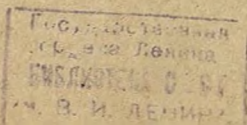 Государственная
ордена Ленина
БИБЛИОТЕКА СССР
им. В. И. ЛЕНИНА